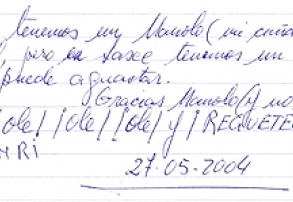 tenemos un Manolo (mi cuña
, pero en saxe tenemos un
puede aguantar.
Gracias Manolo (y no
¡ole! ¡ole! ¡ole! y ¡REQUETE
NRI
27-05-2004